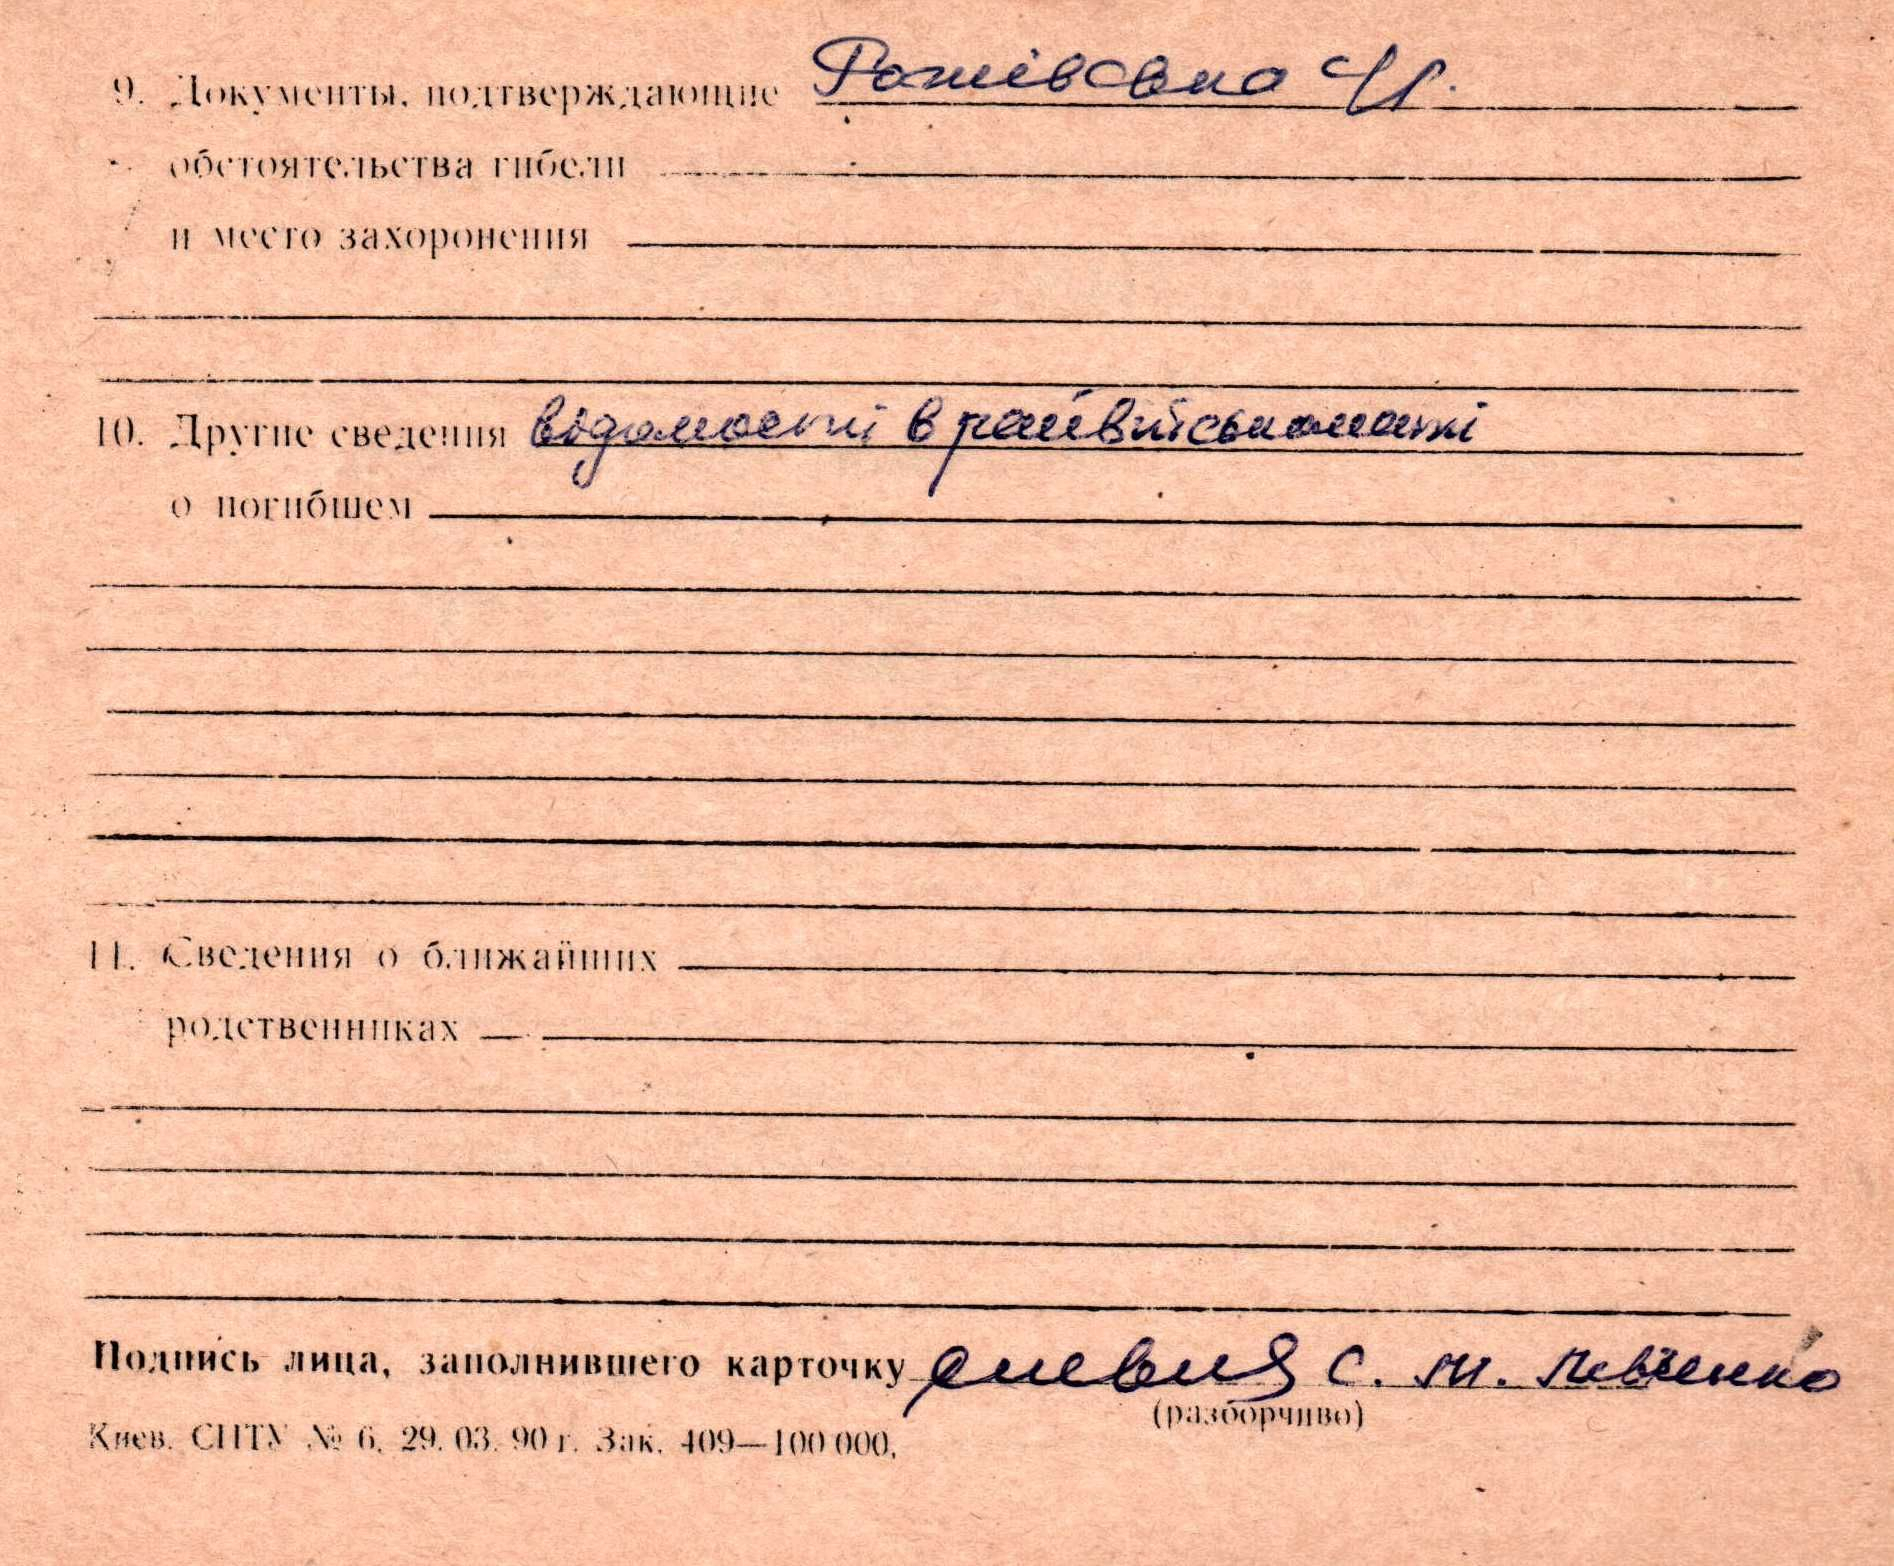 9. Документы, подтверждающие
обстоятельства гибели
и место захоронения
10. Другие сведения відомості в райвійськоматі
о погибшем
11. Сведения о ближайших
родственниках
Подпись лица, заполнившего карточку С. М. Левченко
(разборчиво)
Киев. СПТУ № 6. 29. 03. 90 г. Зак. 409—100 000.